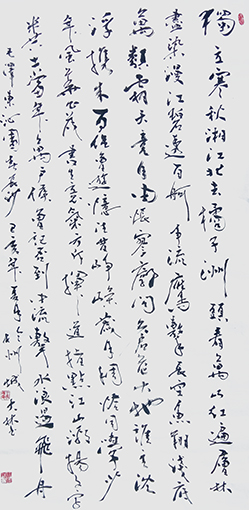 獨立寒秋湘江北去橘子洲頭看萬山紅遍層林
盡染漫江碧透百舸爭流鷹擊長空魚翔淺底
萬類霜天競自由悵寥廓問蒼茫大地誰主沉
浮攜來百侶曾遊憶往昔崢嶸歲月稠恰同學少
年風華正茂書生意氣揮斥方遒指點江山激揚文字
糞土當年萬戶侯曾記否到中流擊水浪遏飛舟
毛澤東沁園春長沙 己亥年夏月